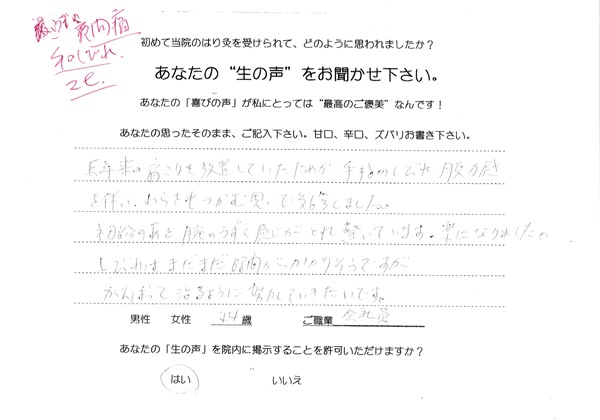 夜間痛
初めて当院のはり灸を受けられて、どのように思われましたか？
あなたの“生の声”をお聞かせ下さい。
あなたの「喜びの声」が私にとっては“最高のご褒美”なんです！
あなたの思ったそのまま、ご記入下さい。甘口、辛口、ズバリお書き下さい。
長年来の肩こりを放置していたためか 手指のしびれ 脱力感
を伴い、わらをもつかむ思いで気持ちしました。
初診のあと 腕のうずく感じがとれ 驚いています。楽になりました。
しびれはまだまだ時間がかかりそうですが
がんばって治るように努力していきたいです。
男性 女性 34歳 ご職業 会社員
あなたの「生の声」を院内に掲示することを許可いただけますか？
はい いいえ